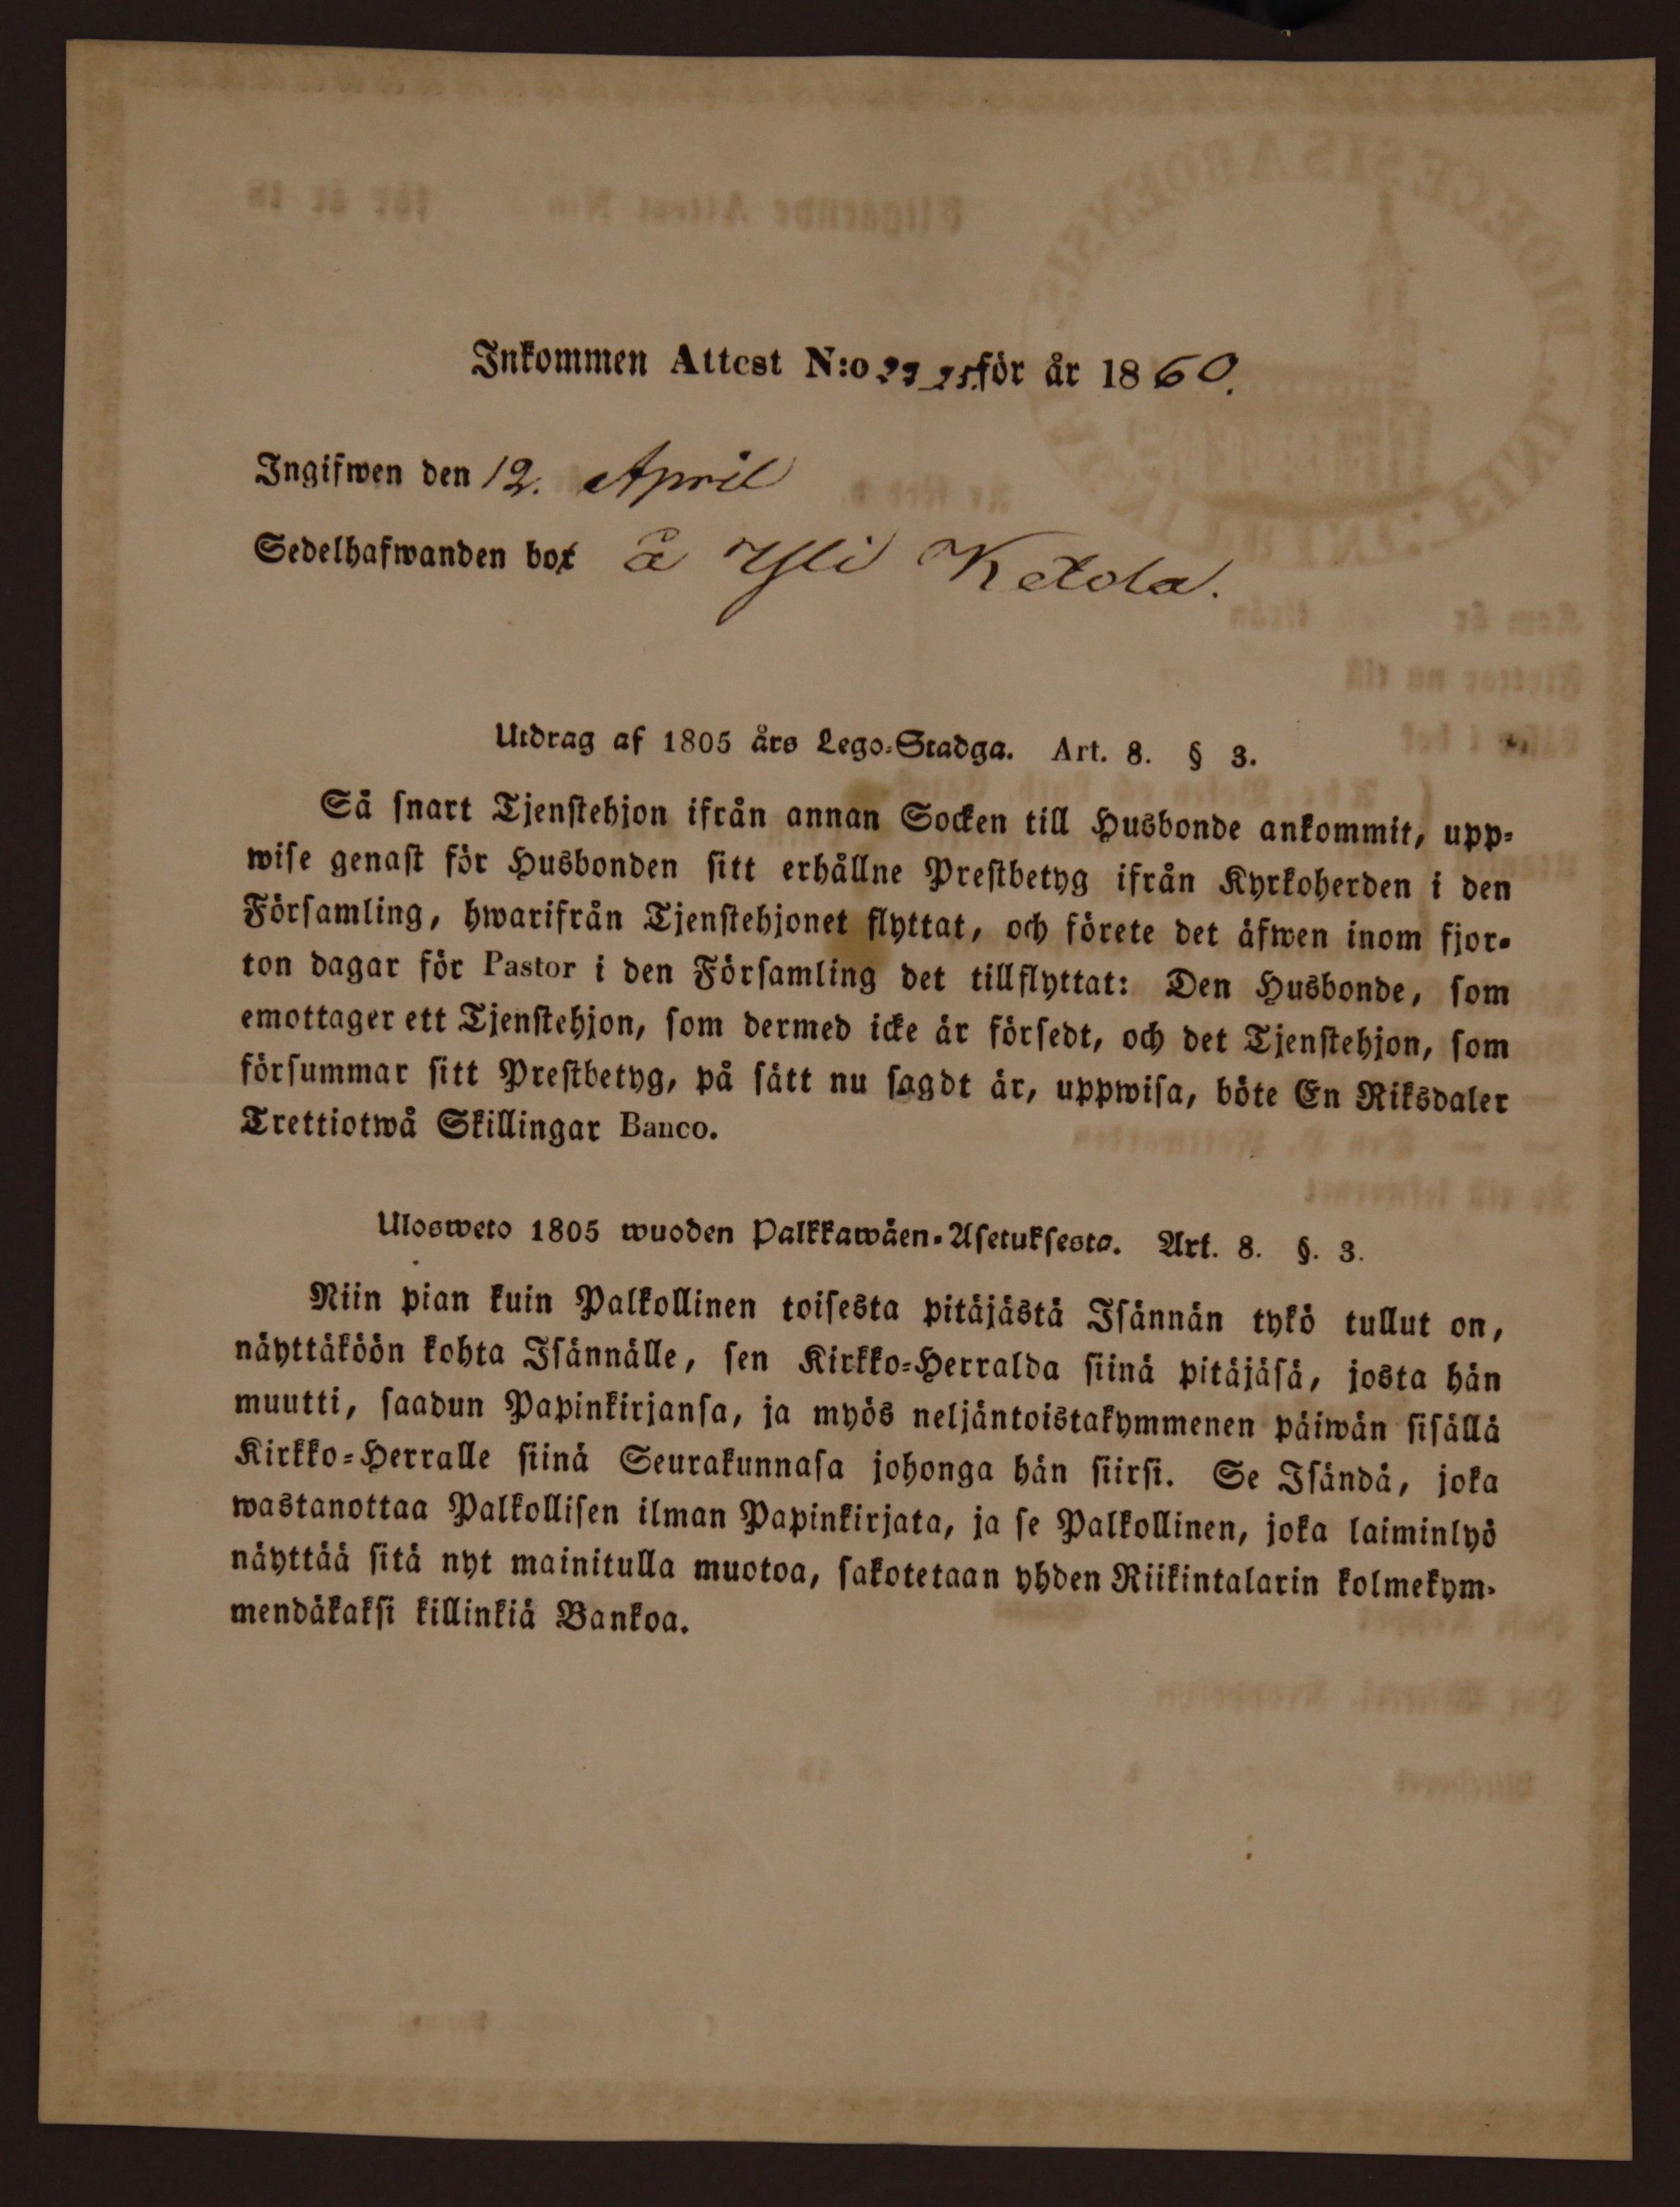 Inkommen Attest N:o för år 1860.
Ingifwen den 12. April
Sedelhafwanden bor å Yli Ketola.
Utdrag af 1805 års Lego-Stadga. Art. 8. § 3.
Så snart Tjenstehjon ifrån annan Socken till Husbonde ankommit, upp-
wise genast för Husbonden sitt erhållne Prestbetyg ifrån Kyrkoherden i den
Församling, hwarifrån Tjenstehjonet flyttat, och förete det äfwen inom fjor-
ton dagar för Pastor i den Församling det tillflyttat: Den Husbonde, som
emottager ett Tjenstehjon, som dermed icke är försedt, och det Tjenstehjon, som
försummar sitt Prestbetyg, på sätt nu sagdt är, uppwisa, böte En Riksdaler
Trettiotwå Skillingar Banco.
Ulosweto 1805 wuoden Palkkawäen-Asetuksesta. Art. 8. §. 3.
Niin pian kuin Palkollinen toisesta pitäjästä Isännän tykö tullut on,
näyttäköön kohta Isännälle, sen Kirkko-Herralda siinä pitäjäsä, josta hän
muutti, saadun Papinkirjansa, ja myös neljäntoistakymmenen päiwän sisällä
Kirkko-Herralle siinä Seurakunnasa johonga hän siirsi. Se Isändä, joka
wastanottaa Palkollisen ilman Papinkirjata, ja se Palkollinen, joka laiminlyö
näyttää sitä nyt mainitulla muotoa, sakotetaan yhden Riikintalarin kolmekym-
mendäkaksi killinkiä Bankoa.